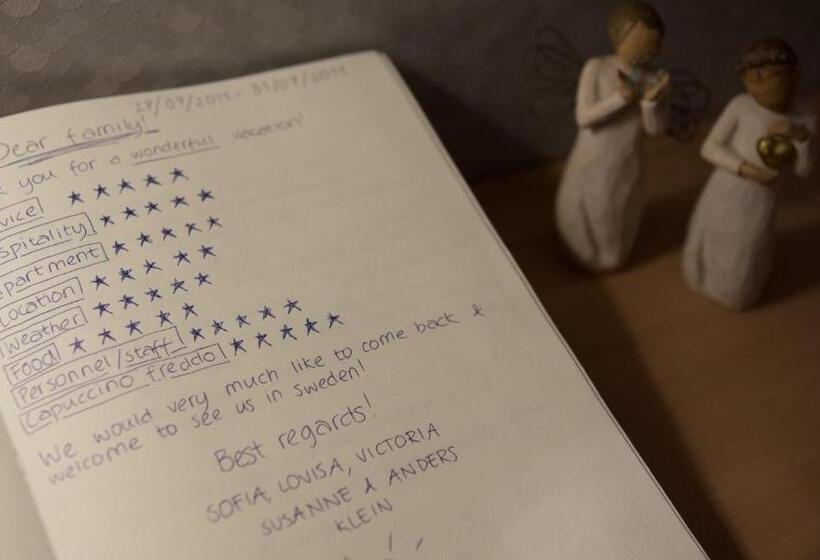 27/07/2011 - 31/07/2011
Dear family!
you for a wonderful vacation!
vice ★★★★★
spitality ★★★★★
partment ★★★★★
Location ★★★★★
Weather ★★★★★
Food ★★★★★
Personnel/staff ★★★★★
Capuccino freddo ★★★★★
We would very much like to come back &
welcome to see us in Sweden!
Best regards!
SOFIA, LOVISA, VICTORIA
SUSANNE & ANDERS
KLEIN